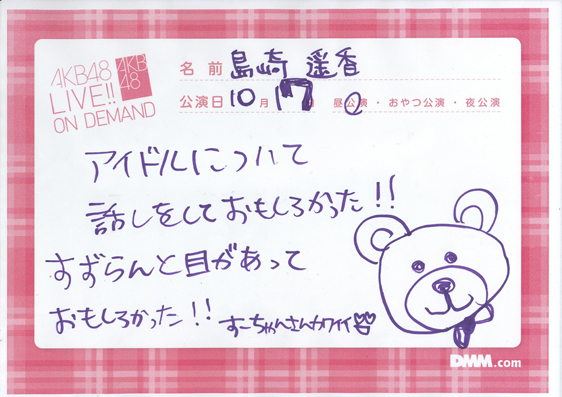 AKB48
LIVE!!
ON DEMAND
AKB
48
名前 島崎 遥香
公演日 10月17日 昼公演・おやつ公演・夜公演
アイドルについて
話しをしておもしろかった!!
すずらんと目があって
おもしろかった!! すーちゃんさんカワイイ
DMM.com